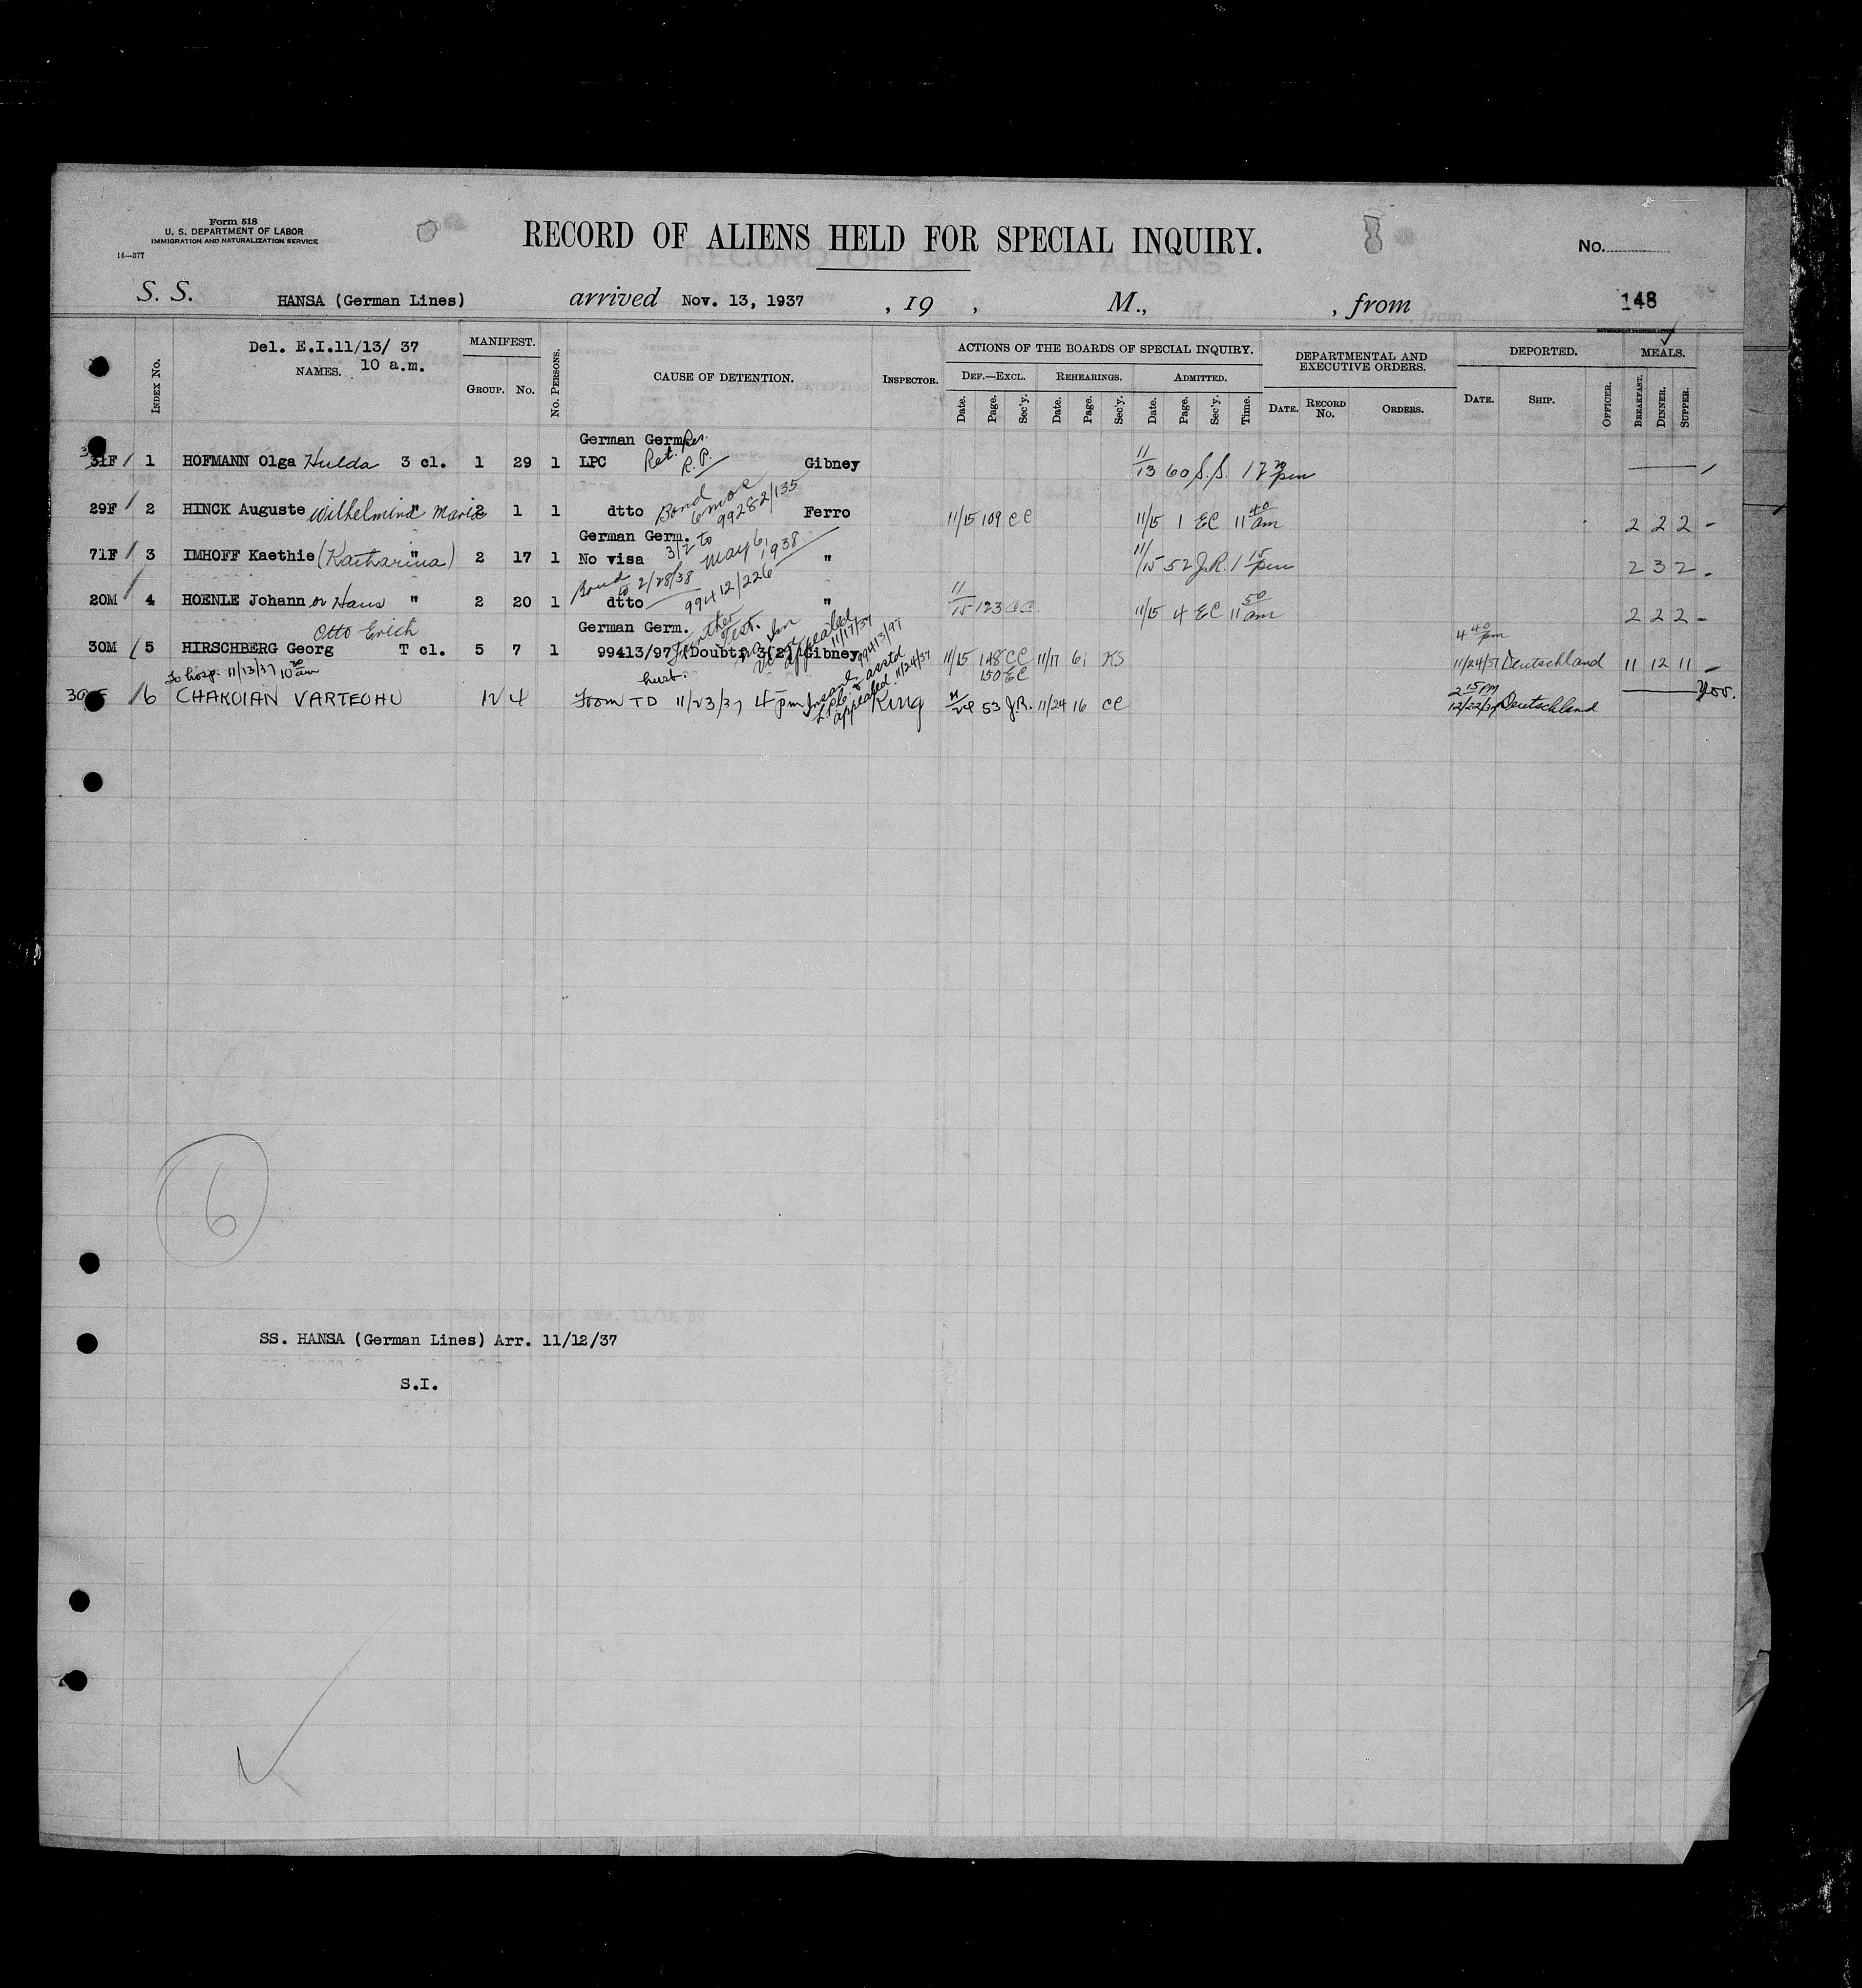 Form 518
U. S. DEPARTMENT OF LABOR
IMMIGRATION AND NATURALIZATION SERVICE
14—377
RECORD OF ALIENS HELD FOR SPECIAL INQUIRY.
No.
S. S. HANSA (German Lines) arrived Nov. 13, 1937 , 19 , M., , from 148
Del. E.I.11/13/ 37
10 a.m.
INDEX No. NAMES. MANIFEST. GROUP. No. No. PERSONS. CAUSE OF DETENTION. INSPECTOR. ACTIONS OF THE BOARDS OF SPECIAL INQUIRY. DEF.—EXCL. Date. Page. Sec'y. REHEARINGS. Date. Page. Sec'y. ADMITTED. Date. Page. Sec'y. Time. DEPARTMENTAL AND EXECUTIVE ORDERS. DATE. RECORD No. ORDERS. DEPORTED. DATE. SHIP. OFFICER. MEALS. BREAKFAST. DINNER. SUPPER.
German Germ
31F 1 HOFMANN Olga Hulda 3 cl. 1 29 1 LPC Ret. R.P. Gibney 11/13 60 S.S.
29F 2 HINCK Auguste Wilhelmina " Marie 2 1 1 dtto Bond 6 mos 99282/135 Ferro 11/15 109 CC 11/15 1 EC 11 40 am 2 2 2 -
German Germ.
71F 3 IMHOFF Kaethie (Katharina) " 2 17 1 No visa 3/2 to May 6, 1938 " 11/15 52 J.R. 1 15 pm 2 3 2 -
20M 4 HOENLE Johann or Hans " 2 20 1 dtto Bond to 2/28/38 99412/226 " 11/15 123 CC 11/15 4 EC 11 50 am 2 2 2 -
German Germ.
Otto Erich
30M 5 HIRSCHBERG Georg T cl. 5 7 1 99413/97 Further Test. (Doubt) 3(2) appealed 11/17/37 Gibney 11/15 148 CC 150 EC 11/17 61 KS 4 40 pm 11/24/37 Deutschland 11 12 11 -
To hosp. 11/13/37 10 30 am
30 F 6 CHAKOIAN VARTEOHU 12 4 From TD 11/23/37 4 pm appealed 11/24/37 99413/97 King 53 J.R. 11/24 16 CC 2 15 PM 12/22/37 Deutschland
6
SS. HANSA (German Lines) Arr. 11/12/37
S.I.